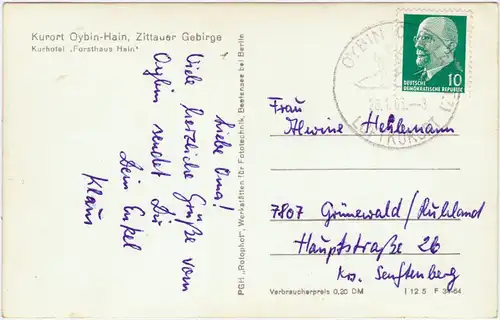 Kurort Oybin-Hain, Zittauer Gebirge
Kurhotel „Forsthaus Hain"
Liebe Oma!
Viele herzliche Grüße vom
Oybin sendet Dir
Dein Enkel
Klaus
PGH „Rotophot", Werkstätten für Fototechnik, Bestensee bei Berlin
OYBIN
LUFTKURORT
10
DEUTSCHE
DEMOKRATISCHE REPUBLIK
Frau
Alwine Hehlemann
7807 Grünewald/Ruhland
Hauptstraße 26
Krs. Senftenberg
Verbraucherpreis 0,20 DM